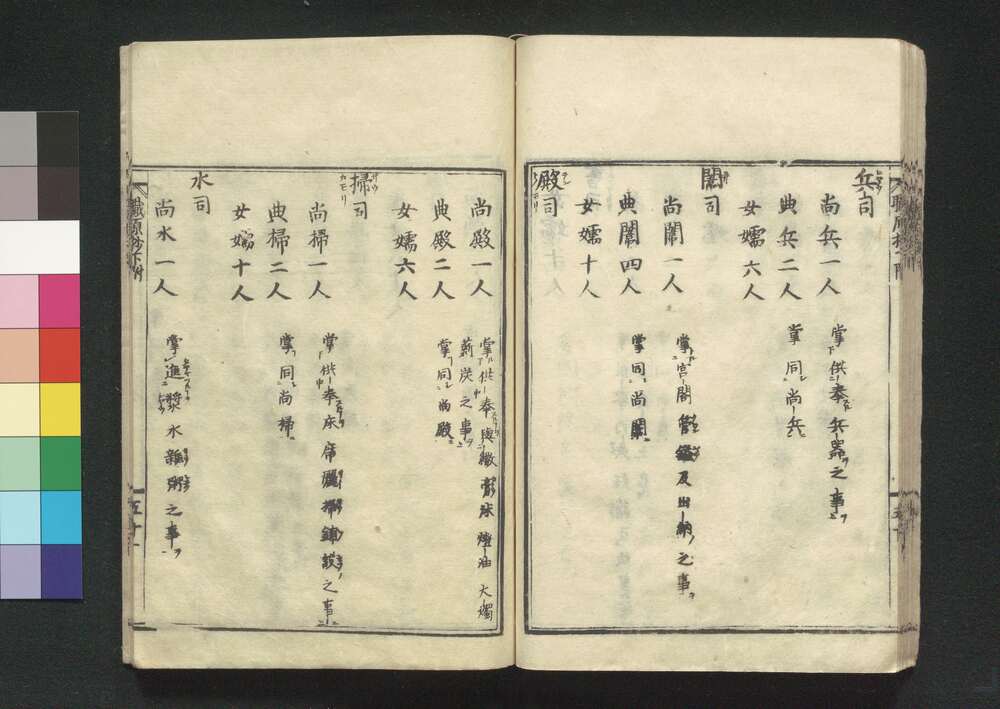 兵司
尚兵一人
掌供奉兵器之事
典兵二人
掌同尚兵
女嬬六人
闈司
尚闈一人
掌宮閤管鑰及出納之事
典闈四人
掌同尚闈
女嬬十人
殿司
尚殿一人
掌供奉輿繖膏沐燈油火燭
薪炭之事
典殿二人
掌同尚殿
女嬬六人
掃司
尚掃一人
掌供奉床席灑掃鋪設之事
典掃二人
掌同尚掃
女嬬十人
水司
尚水一人
掌進漿水雜粥之事
職原抄下附